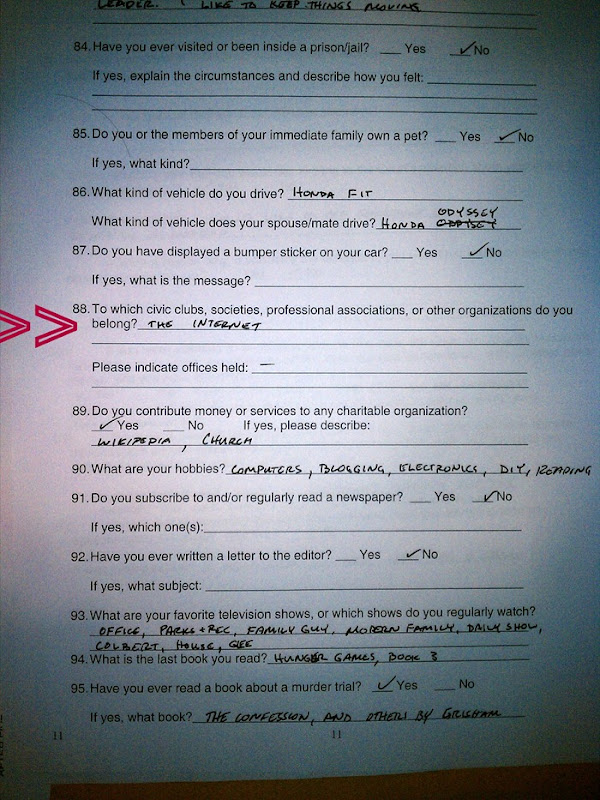 LEADER. I LIKE TO KEEP THINGS MOVING
84. Have you ever visited or been inside a prison/jail? ___ Yes ✓ No
If yes, explain the circumstances and describe how you felt:
85. Do you or the members of your immediate family own a pet? ___ Yes ✓ No
If yes, what kind?
86. What kind of vehicle do you drive? HONDA FIT
ODYSSEY
What kind of vehicle does your spouse/mate drive? HONDA
87. Do you have displayed a bumper sticker on your car? ___ Yes ✓ No
If yes, what is the message?
88. To which civic clubs, societies, professional associations, or other organizations do you
belong? THE INTERNET
Please indicate offices held: —
89. Do you contribute money or services to any charitable organization?
✓ Yes ___ No If yes, please describe:
WIKIPEDIA, CHURCH
90. What are your hobbies? COMPUTERS, BLOGGING, ELECTRONICS, DIY, READING
91. Do you subscribe to and/or regularly read a newspaper? ___ Yes ✓ No
If yes, which one(s):
92. Have you ever written a letter to the editor? ___ Yes ✓ No
If yes, what subject:
93. What are your favorite television shows, or which shows do you regularly watch?
OFFICE, PARKS + REC, FAMILY GUY, MODERN FAMILY, DAILY SHOW,
COLBERT, HOUSE, GLEE
94. What is the last book you read? HUNGER GAMES, BOOK 3
95. Have you ever read a book about a murder trial? ✓ Yes ___ No
If yes, what book? THE CONFESSION, AND OTHERS BY GRISHAM
11
11